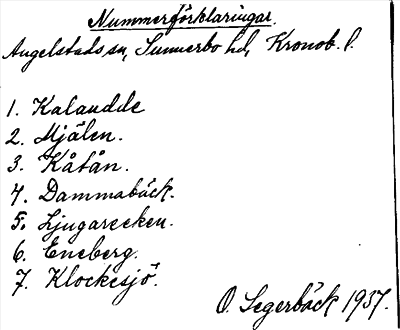 Nummerförklaringar.
Angelstads sn, Sunnerbo hd, Kronob. l.
1. Kalaudde
2. Mjälen.
3. Kåtån.
4. Dammabäck.
5. Ljugarecken.
6. Eneberg.
7. Klockesjö.
O. Segerbäck 1937.